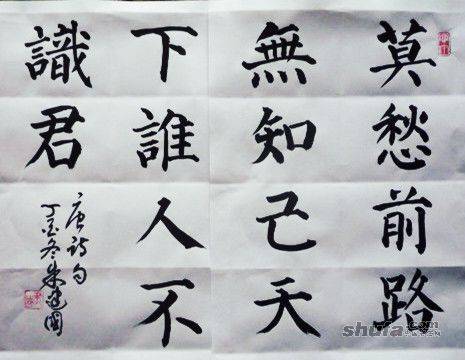 莫愁前路
無知己天
下誰人不
識君
唐詩句
丁冬朱建國
shufa.com